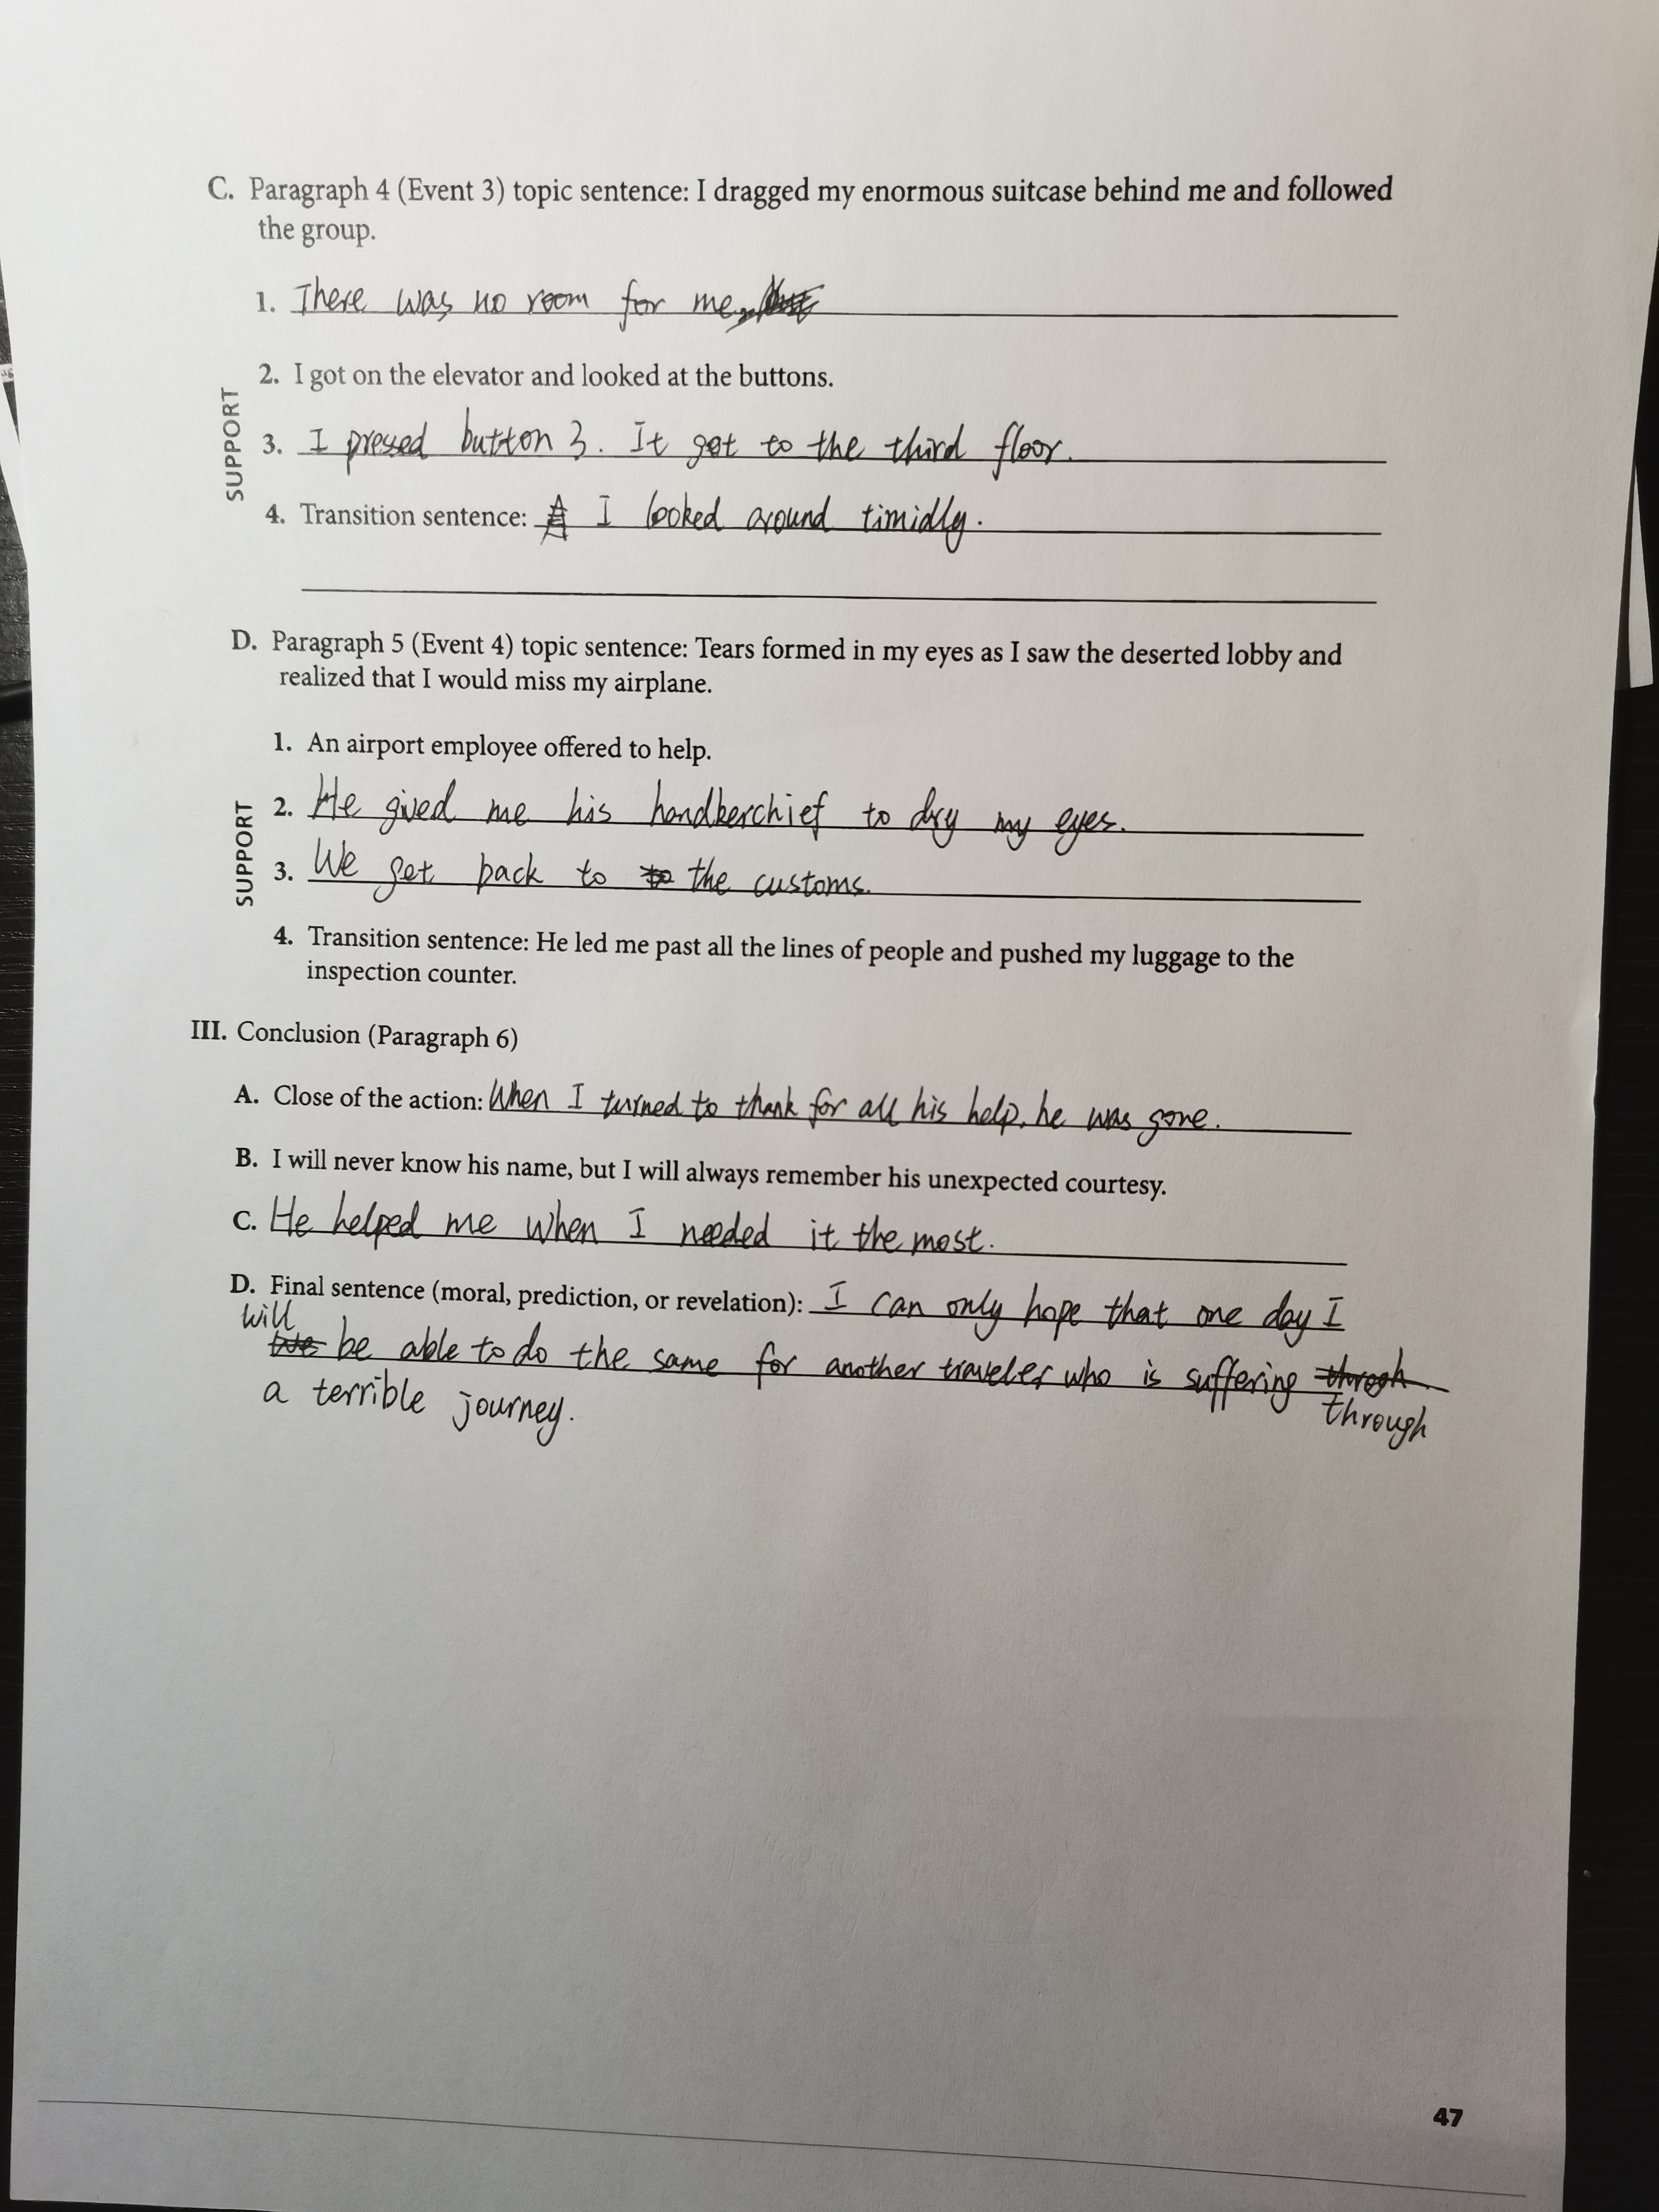 C. Paragraph 4 (Event 3) topic sentence: I dragged my enormous suitcase behind me and followed
the group.
1. There was no room for me.
SUPPORT
2. I got on the elevator and looked at the buttons.
3. I pressed button 3. It got to the third floor.
4. Transition sentence: I looked around timidly.
D. Paragraph 5 (Event 4) topic sentence: Tears formed in my eyes as I saw the deserted lobby and
realized that I would miss my airplane.
1. An airport employee offered to help.
SUPPORT
2. He gived me his handkerchief to dry my eyes.
3. We get back to to the customs.
4. Transition sentence: He led me past all the lines of people and pushed my luggage to the
inspection counter.
III. Conclusion (Paragraph 6)
A. Close of the action: When I turned to thank for all his help, he was gone.
B. I will never know his name, but I will always remember his unexpected courtesy.
C. He helped me when I needed it the most.
D. Final sentence (moral, prediction, or revelation): I can only hope that one day I
will
be able to do the same for another traveler who is suffering throgh
through
a terrible journey.
47